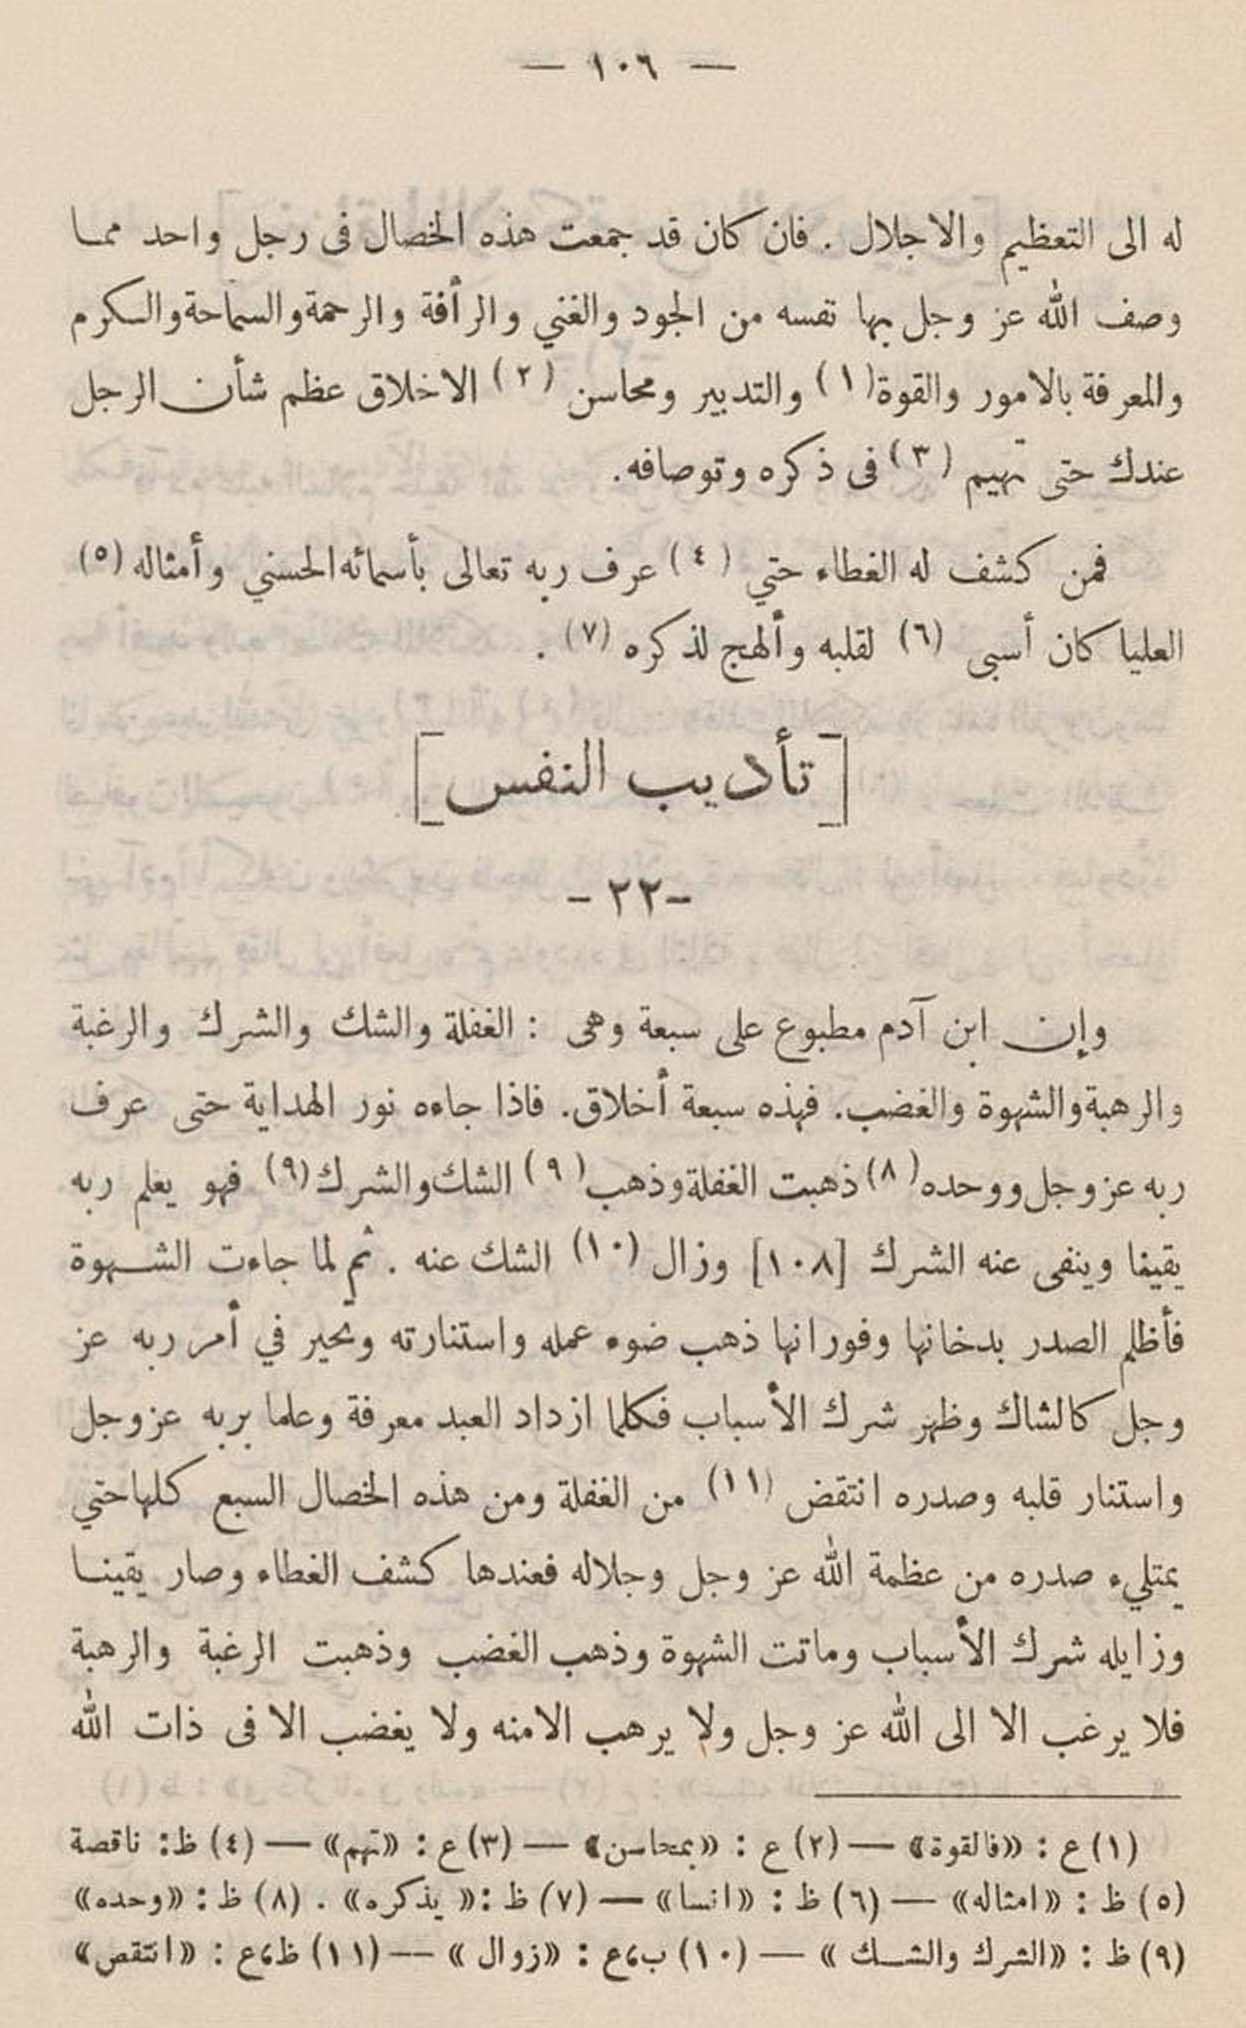 — ١٠٦ —
له الى التعظيم والاجلال . فان كان قد جمعت هذه الخصال فى رجل واحد مما
وصف الله عز وجل بها نفسه من الجود والغني والرأفة والرحمة والسماحة والكرم
والمعرفة بالامور والقوة (١) والتدبير ومحاسن (٢) الاخلاق عظم شأن الرجل
عندك حتى تهيم (٣) فى ذكره وتوصافه.
فمن كشف له الغطاء حتي (٤) عرف ربه تعالى بأسمائه الحسني وأمثاله (٥)
العليا كان أسبى (٦) لقلبه وألهج لذكره (٧) .
[ تأديب النفس ]
- ٢٢ -
وإن ابن آدم مطبوع على سبعة وهى : الغفلة والشك والشرك والرغبة
والرهبة والشهوة والغضب. فهذه سبعة أخلاق. فاذا جاءه نور الهداية حتى عرف
ربه عز وجل ووحده (٨) ذهبت الغفلة وذهب (٩) الشك والشرك (٩) فهو يعلم ربه
يقينا وينفى عنه الشرك [١٠٨] وزال (١٠) الشك عنه . ثم لما جاءت الشهوة
فأظلم الصدر بدخانها وفورانها ذهب ضوء عمله واستنارته وتحير في أمر ربه عز
وجل كالشاك وظهر شرك الأسباب فكلما ازداد العبد معرفة وعلما بربه عز وجل
واستنار قلبه وصدره انتقض (١١) من الغفلة ومن هذه الخصال السبع كلها حتي
يمتليء صدره من عظمة الله عز وجل وجلاله فعندها كشف الغطاء وصار يقينا
وزايله شرك الأسباب وماتت الشهوة وذهب الغضب وذهبت الرغبة والرهبة
فلا يرغب الا الى الله عز وجل ولا يرهب الامنه ولا يغضب الا فى ذات الله
(١) ع : «فالقوة» — (٢) ع : «بمحاسن» — (٣) ع : «تهم» — (٤) ظ : ناقصة
(٥) ظ : «امثاله» — (٦) ظ : «انسا» — (٧) ظ : « يذكره» . (٨) ظ : «وحده»
(٩) ظ : «الشرك والشك » — (١٠) ب،ع : «زوال » — (١١) ظ،ع : «انتقص»